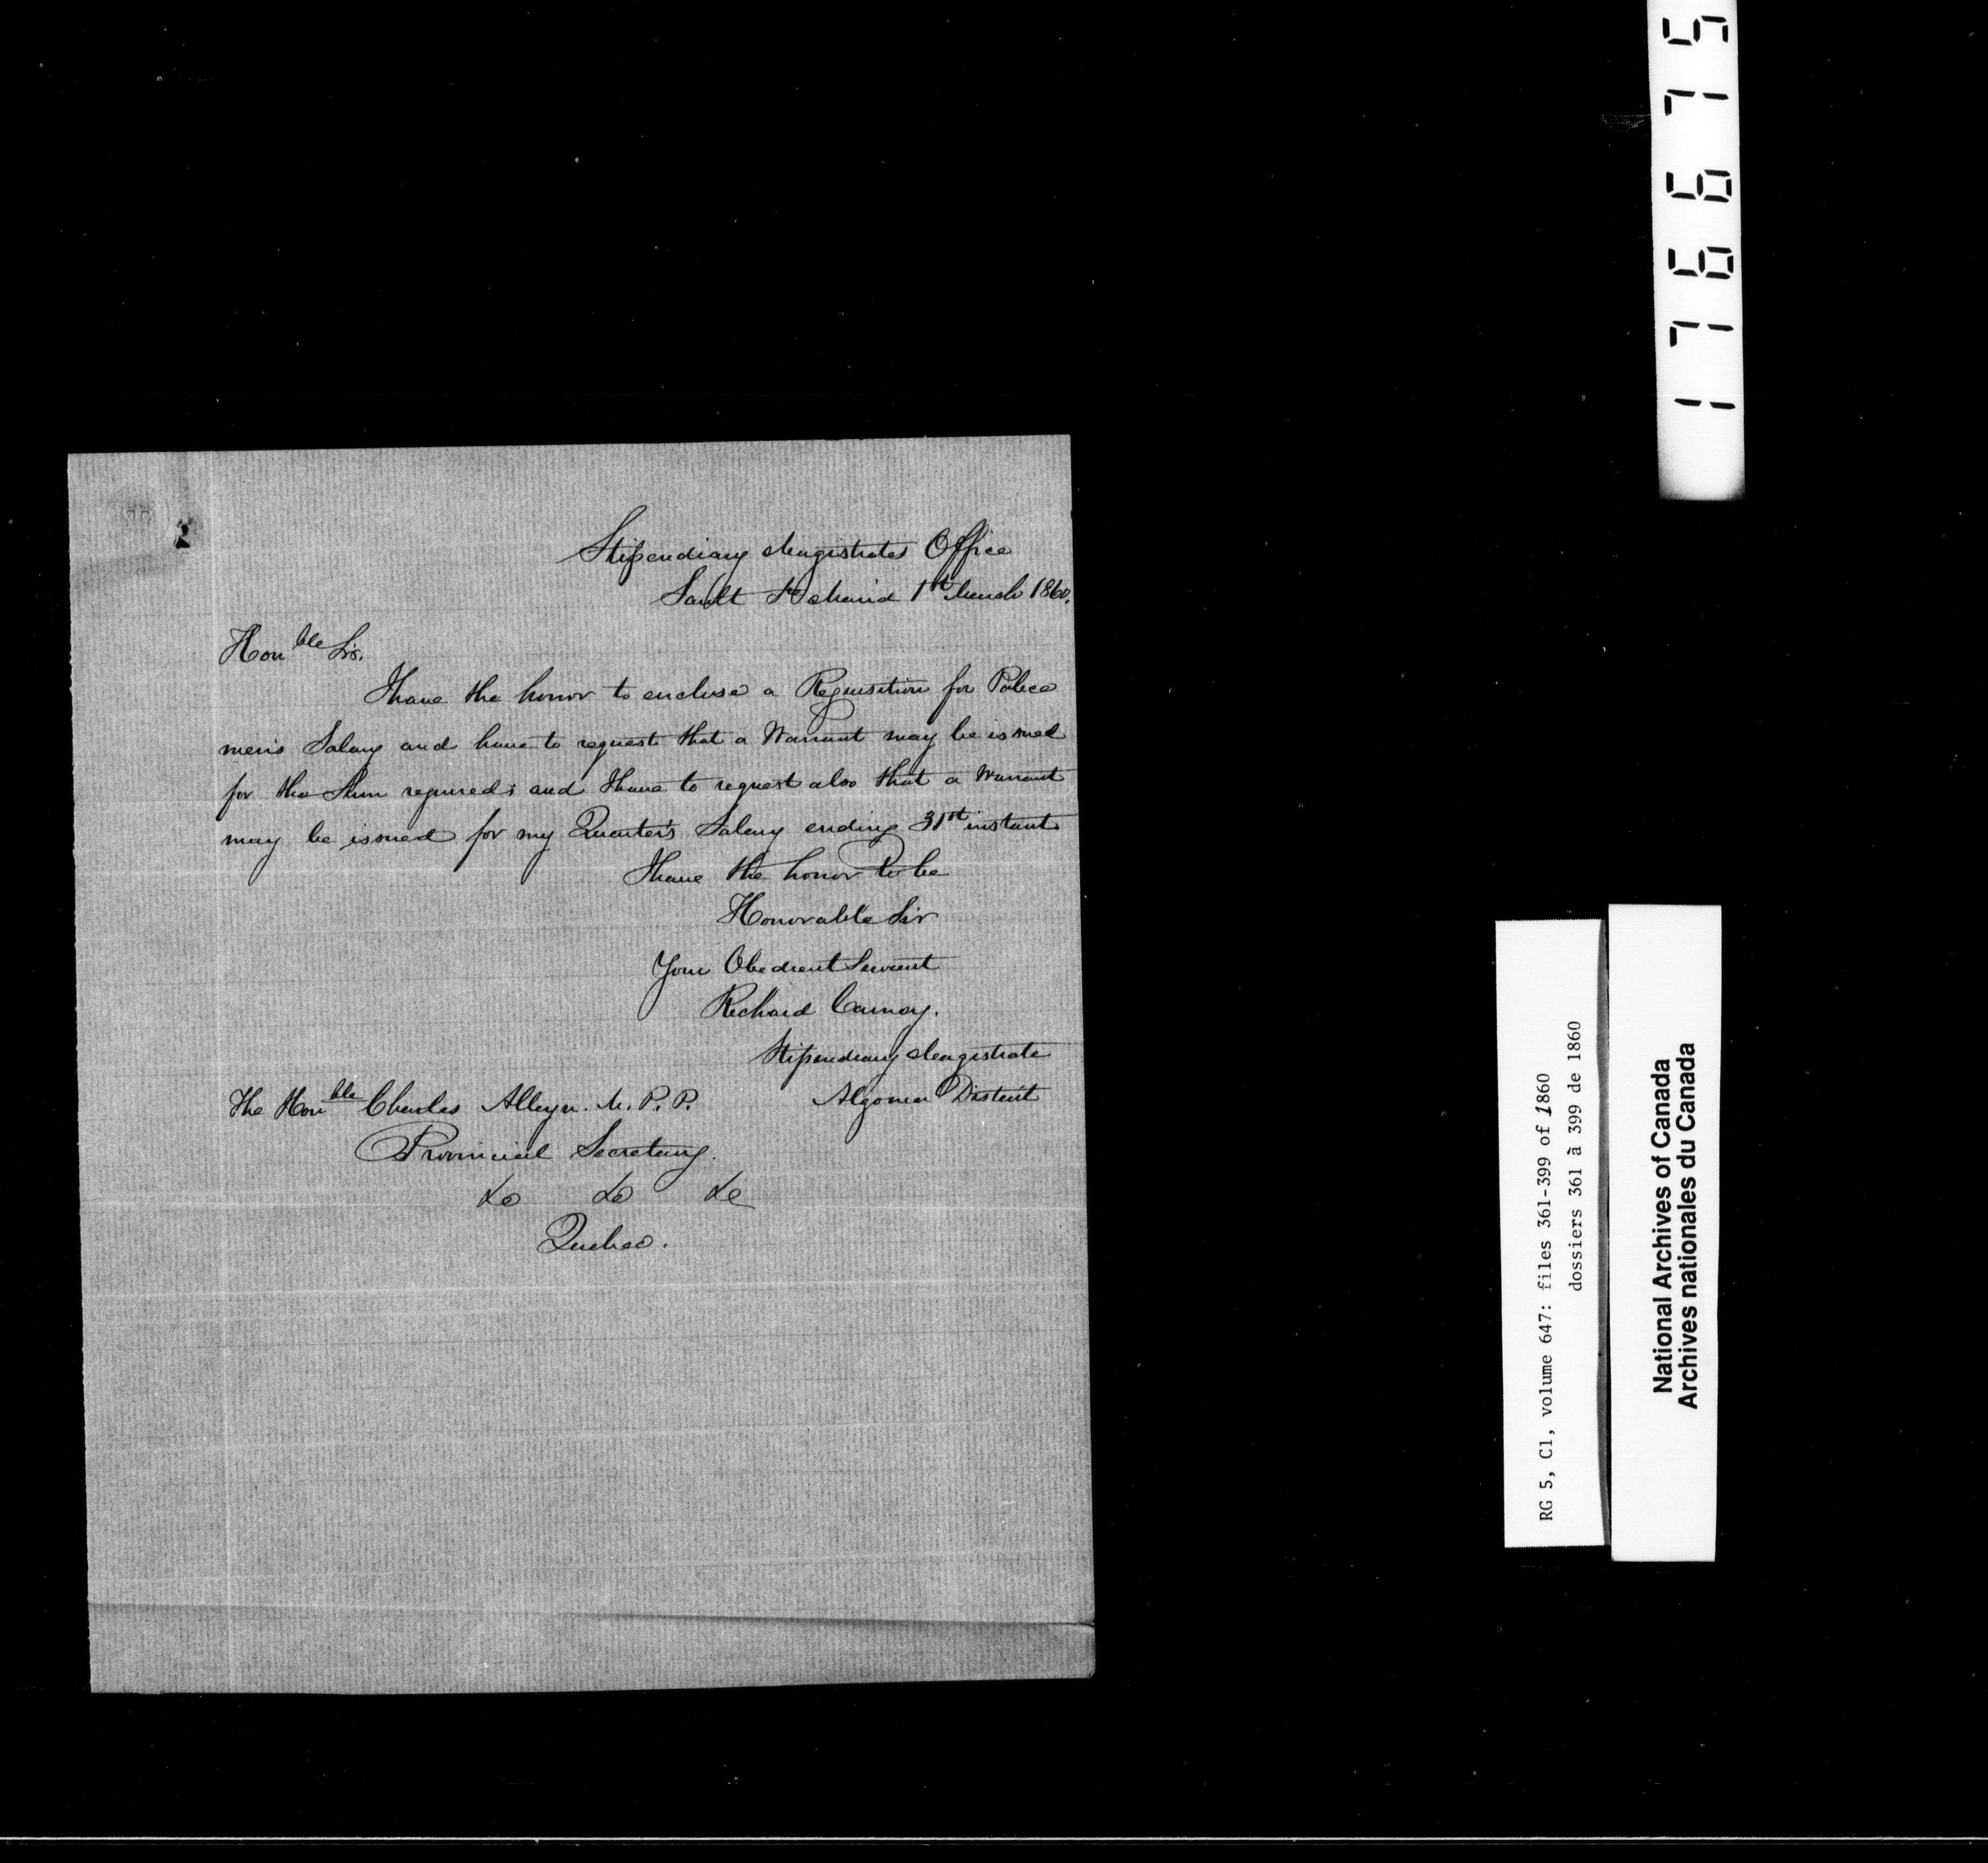 2
Stipendiary Magistrates Office
Sault Ste Marie 1st March 1860.
Honble Sir.
I have the honor to enclose a Requisition for Police
men's Salary and have to request that a Warrant may be issued
for the Sum required; and I have to request also that a Warrant
may be issued for my Quarter's Salary ending 31st instant
I have the honor to be
Honorable Sir
Your Obedient Servant
Richard Carney.
Stipendiary Magistrate
Algoma District
The Honble Charles Alleyn. M. P. P.
Provincial Secretary.
&c &c &c
Quebec.
176675
RG 5, C1, volume 647: files 361-399 of 1860
dossiers 361 à 399 de 1860
National Archives of Canada
Archives nationales du Canada